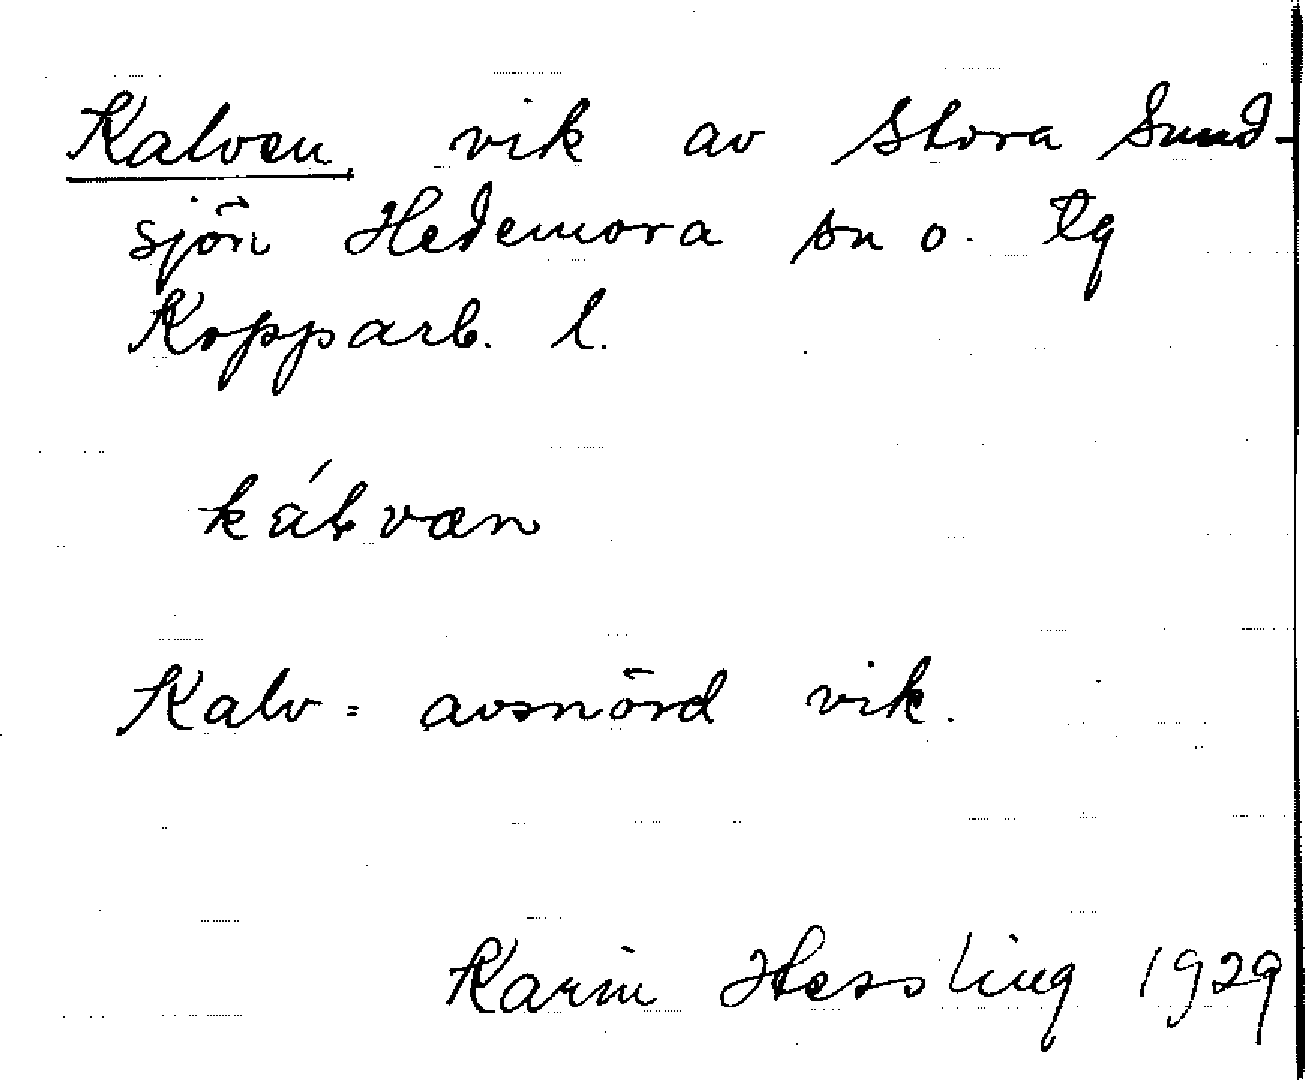 Kalven vik av Stora Sund-
sjön Hedemora sn o. tg
Kopparb. l.
kálvæn
Kalv = avsnörd vik.
Karin Hessling 1929